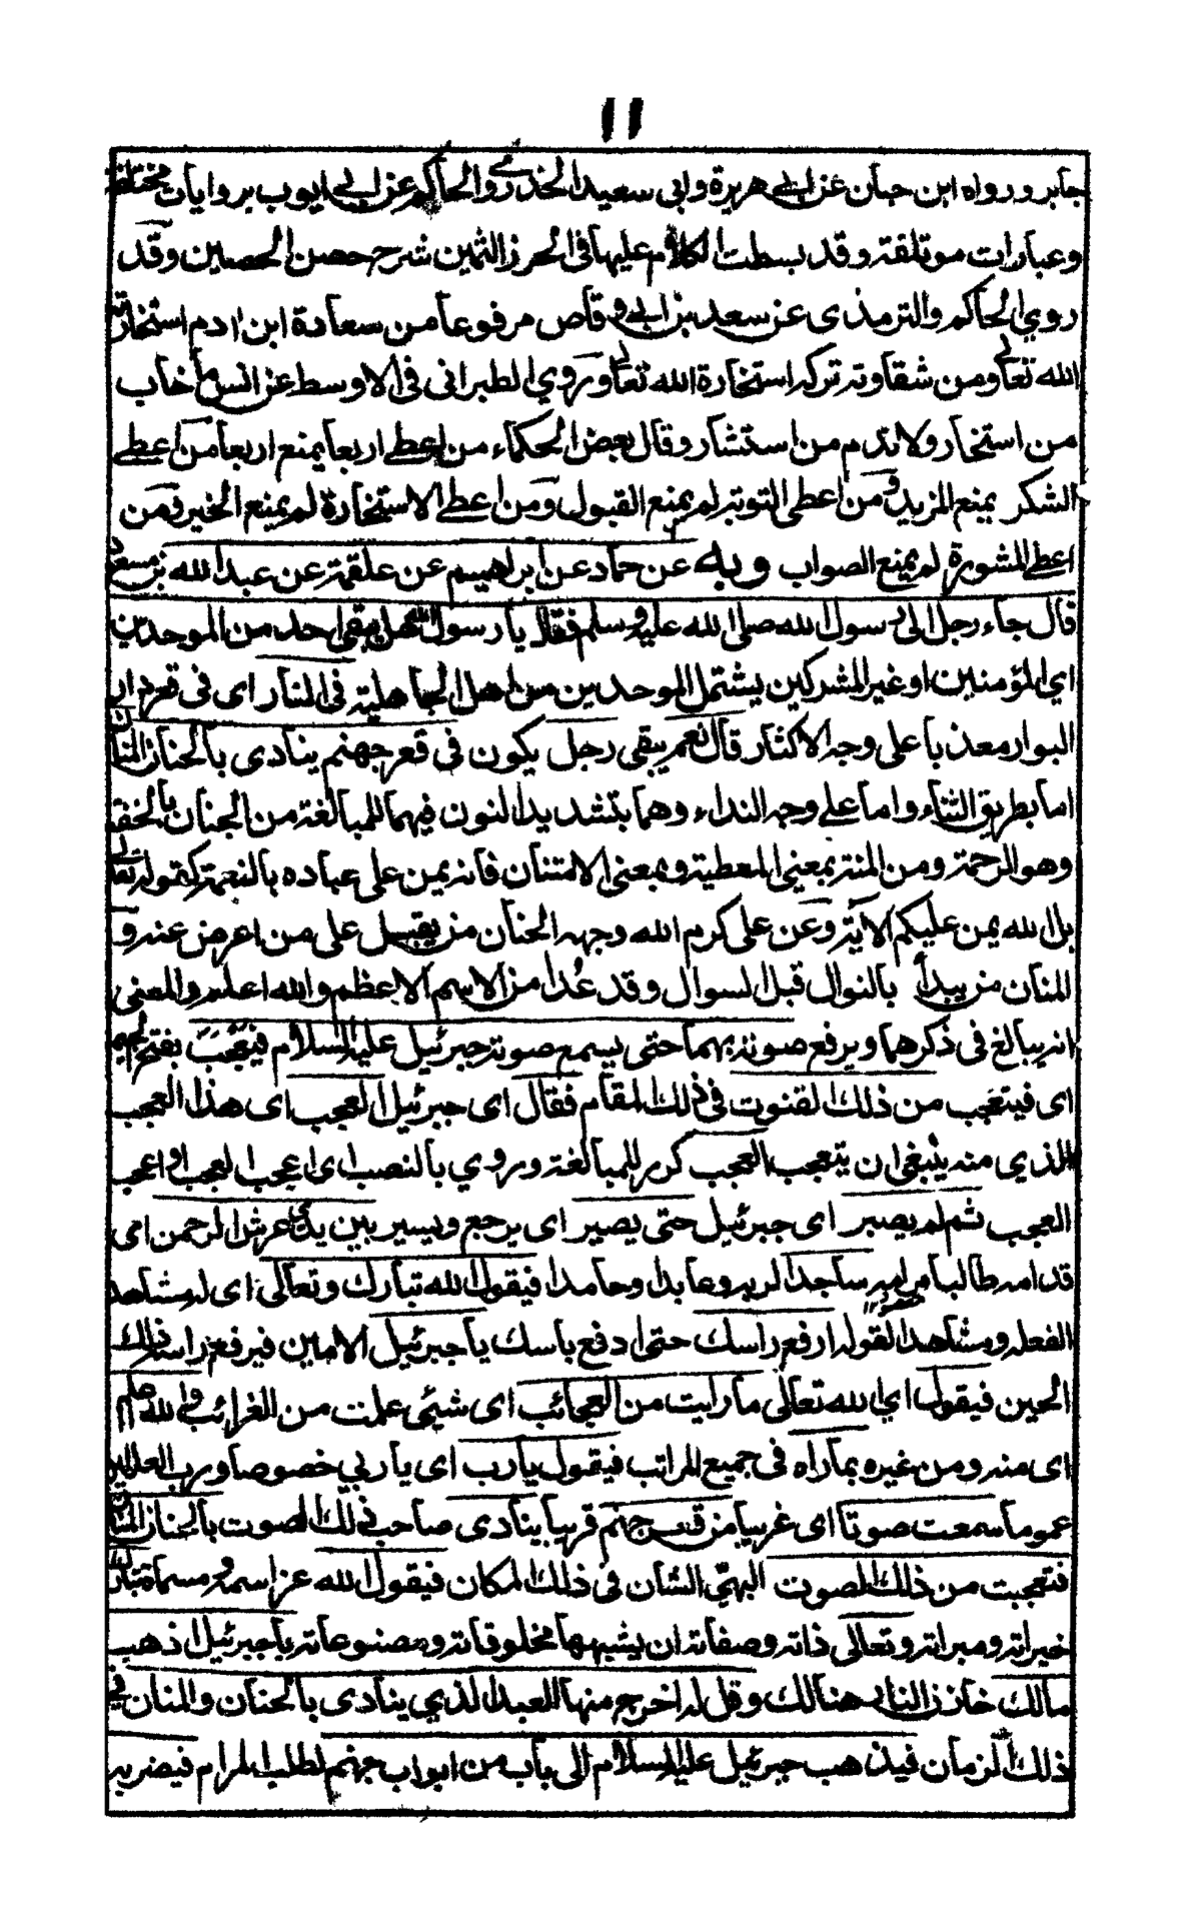 ١١
جابر ورواه ابن حبان عن ابي هريرة وابي سعيد الخدري والحاكم عن ابي ايوب بروايات مختلفة
وعبارات موتلفة وقد بسطت الكلام عليها فى الحرز الثمين شرح حصن الحصين وقد
روي الحاكم والترمذى عن سعد بن ابي وقاص مرفوعا من سعادة ابن ادم استخارته
الله تعالى ومن شقاوته تركه استخارة الله تعالى وروي الطبرانى فى الاوسط عن انس ما خاب
من استخار ولا ندم من استشار وقال بعض الحكماء من اعطى اربعا يمنع اربعا من اعطى
الشكر يمنع المزيد ومن اعطى التوبة لم يمنع القبول ومن اعطى الاستخارة لم يمنع الخير ومن
اعطى المشورة لم يمنع الصواب وبه عن حماد عن ابراهيم عن علقمة عن عبد الله بن مسعود
قال جاء رجل الى رسول الله صلى الله عليه وسلم فقال يا رسول الله هل يبقى احد من الموحدين
اي المؤمنين او غير المشركين يشتمل الموحدين من اهل الجاهلية فى النار اى فى قعر دار
البوار معذبا على وجه الاكثار قال نعم يبقى رجل يكون فى قعر جهنم ينادى بالحنان المنان
اما بطريق الثناء واما على وجه النداء وهما بتشديد النون فيهما للمبالغة من الحنان بالخفة
وهو الرحمة ومن المنة بمعنى المعطية وبمعنى الامتنان فانه يمن على عباده بالنعمة كقوله تعالى
بل الله يمن عليكم الاية وعن على كرم الله وجهه الحنان من يقبل على من اعرض عنه و
المنان من يبدأ بالنوال قبل السوال وقد عُدا من الاسم الاعظم والله اعلم والمعنى
انه يبالغ فى ذكرهما ويرفع صوته بهما حتى يسمع صوته جبرئيل عليه السلام فيتعجب بفتح الجيم
اى فيتعجب من ذلك القنوت فى ذلك المقام فقال اى جبرئيل العجب اى هذا العجب
الذي منه ينبغى ان يتعجب العجب كرر للمبالغة وروي بالنصب اى اعجب العجب او اعجب
العجب ثم لم يصبر اى جبرئيل حتى يصير اى يرجع ويسير بين يدى عرش الرحمن اى
قدامه طالبا مرامه ساجدا لربه وعابدا وحامدا فيقول الله تبارك وتعالى اى له مشاهد
الفعله ومشاهدا لقوله ارفع راسك حتى ادفع باسك يا جبرئيل الامين فيرفع راسه ذلك
الحين فيقول اي الله تعالى ما رايت من العجائب اى شيئى علمت من الغرائب والله اعلم
اى منه ومن غيره بما راه فى جميع المراتب فيقول يا رب اى يا ربي خصوصا ورب العالمين
عموما سمعت صوتا اى غريبا من قعر جهنم قريبا ينادى صاحب ذلك الصوت بالحنان المنان
فتعجبت من ذلك الصوت البهىّ الشان فى ذلك المكان فيقول الله عز اسمه ومسماه تبارك
خيراته ومبراته وتعالى ذاته وصفاته ان يشبهها مخلوقاته ومصنوعاته يا جبرئيل اذهب
مالك خازن النار هنالك وقل له اخرج منها العبد الذي ينادى بالحنان والمنان فى
ذلك الزمان فيذهب جبرئيل عليه السلام الى باب من ابواب جهنم لطلب المرام فيضربه